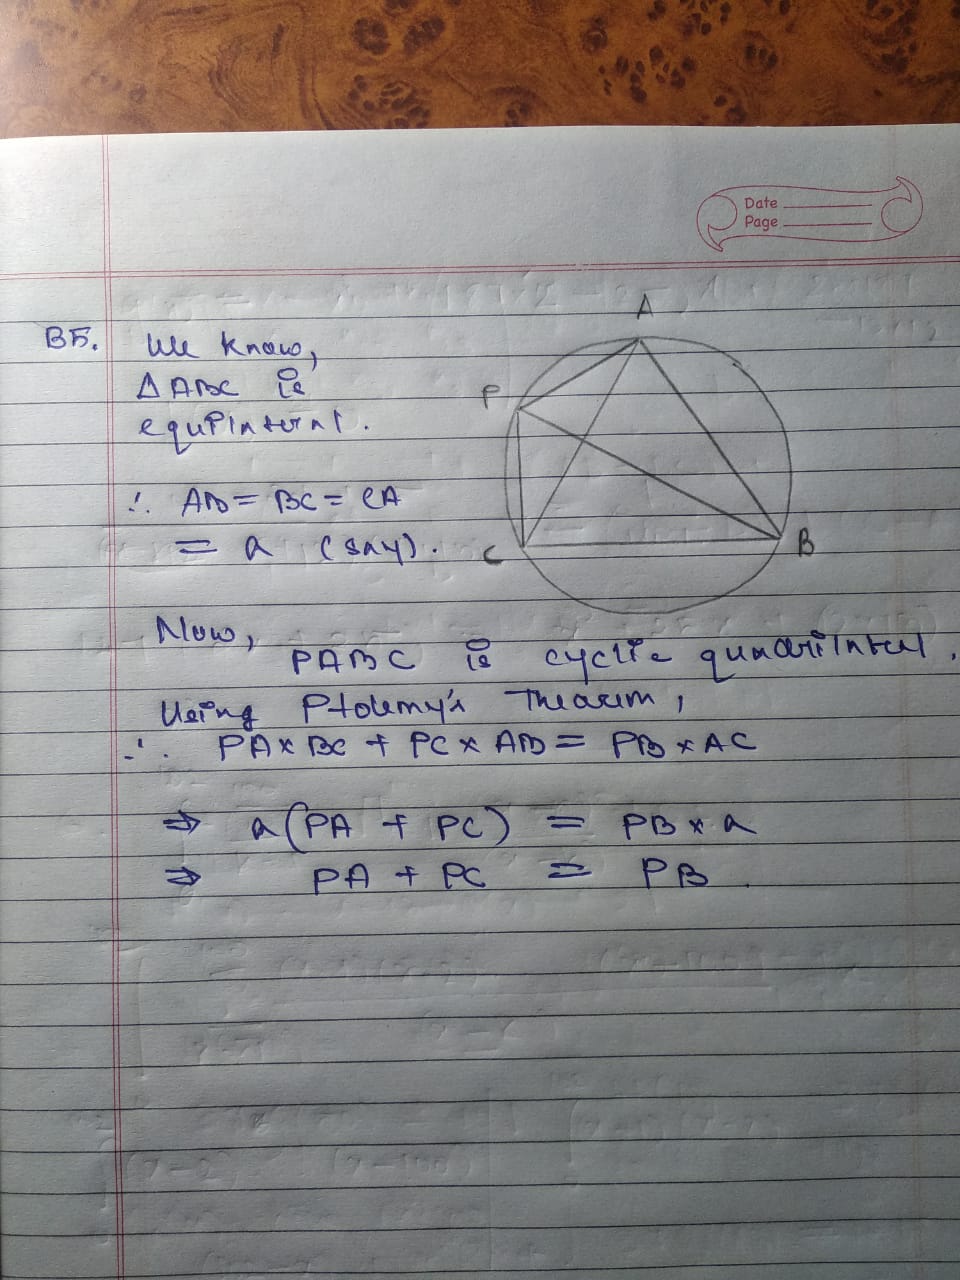 Date
Page
B5. We know,
Δ ABC is
equilateral.
∴ AB = BC = CA
= a (say).
A
P
C
B
Now,
PABC is cyclic quadrilateral.
Using Ptolemy's Thearem,
∴ PA × BC + PC × AB = PB × AC
⇒ a(PA + PC) = PB × a
⇒ PA + PC = PB.